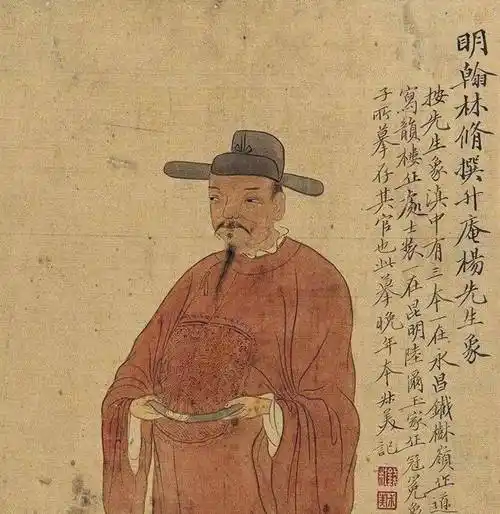 明翰林脩撰升庵楊先生象
按先生象滇中有三本一在永昌鐵樹嶺止道
寫韻樓止處士裝一在昆明陸爾玉家止冠冕象
子所摹存其官也此摹晚年本尗美記